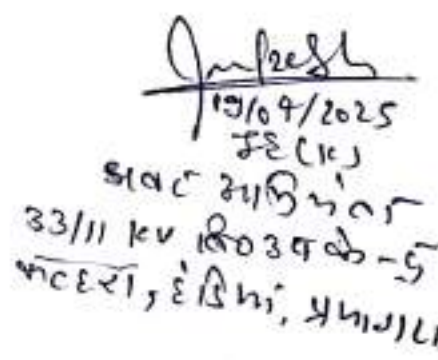 19/04/2025
JE (K)
अवर अभियंता
33/11 kv वि० उपकेन्द्र
हंडिया, प्रयागराज